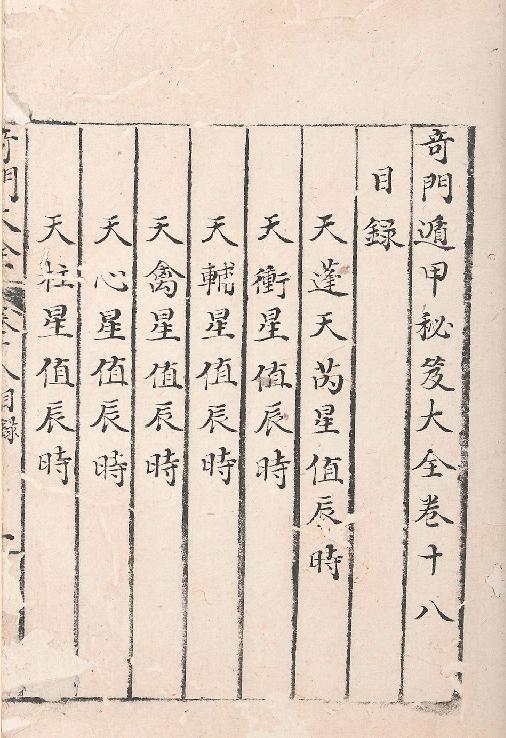 奇門遁甲秘笈大全卷十八
目錄
天蓬天芮星值辰時
天衝星值辰時
天輔星值辰時
天禽星值辰時
天心星值辰時
天柱星值辰時
奇門大全 卷十八目錄